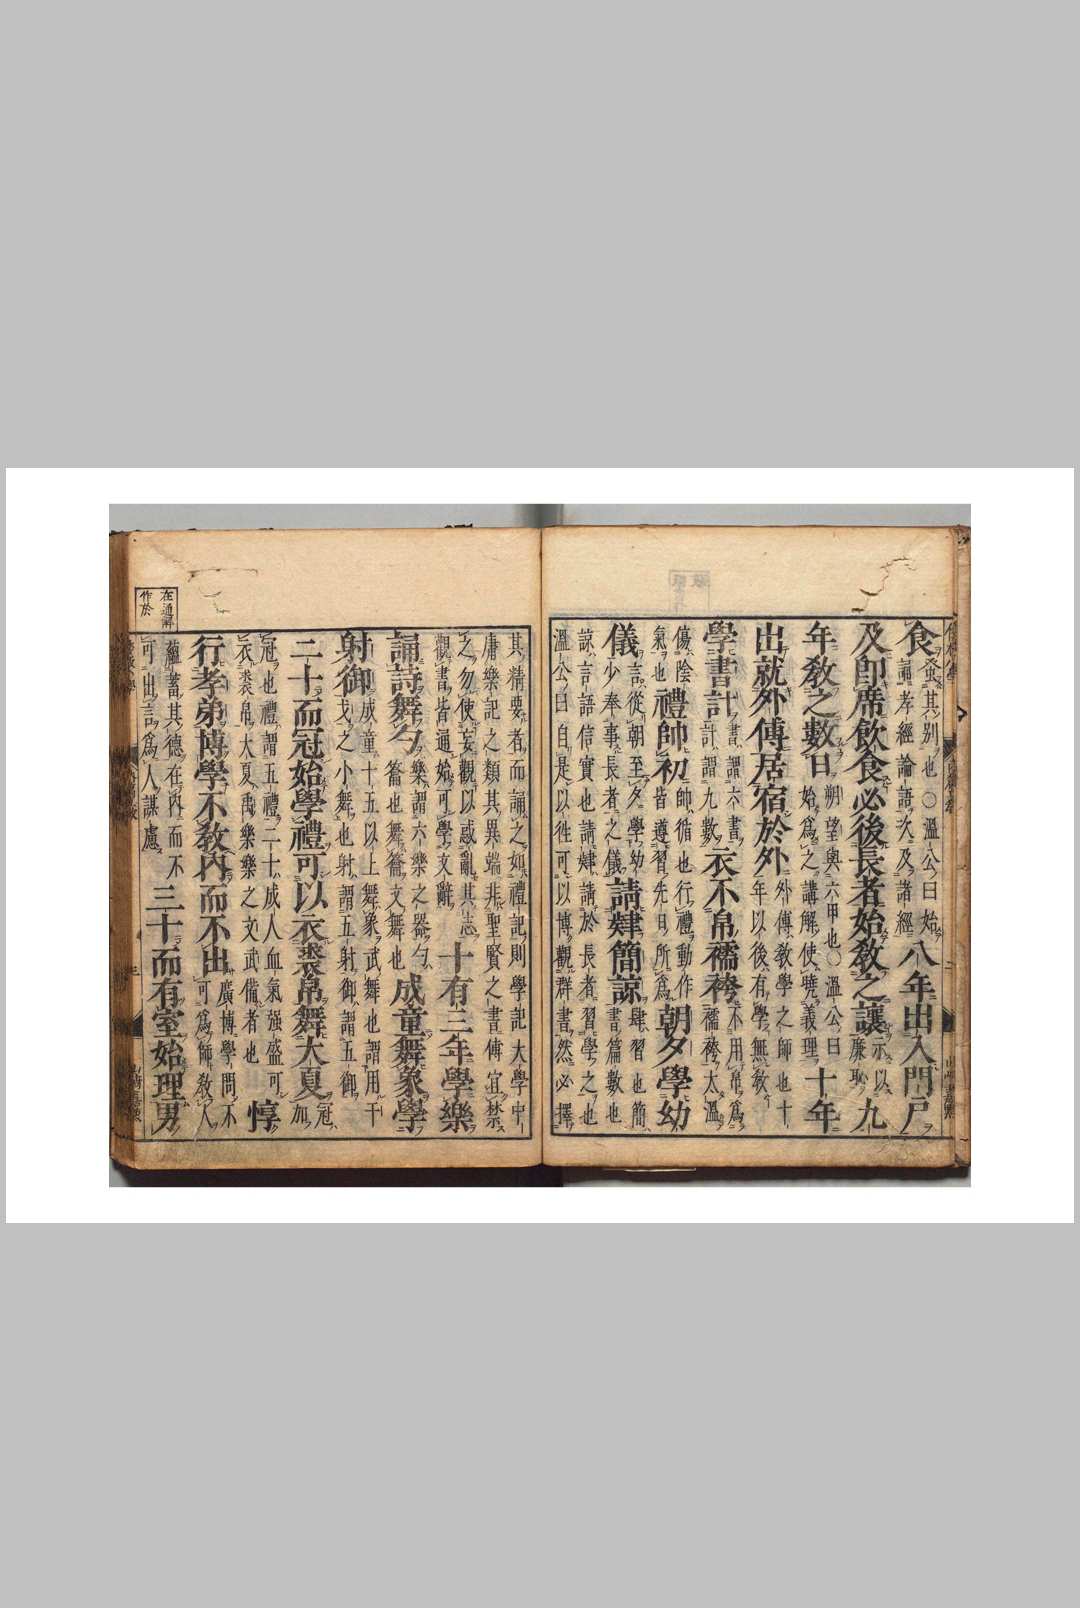 食蚤其別也○溫公曰始誦孝經論語次及諸經八年出入門戶
及卽席飲食必後長者始敎之讓示以廉恥九
年敎之數日朔望與六甲也○溫公曰始爲之講解使曉義理十年
出就外傅居宿於外外傅敎學之師也十年以後有學無敎
學書計書謂六書計謂九數衣不帛襦袴不用帛爲襦袴太溫
傷陰氣也禮帥初帥循也行禮動作皆遵習先日所爲朝夕學幼
儀言從朝至夕學幼少奉事長者之儀請肄簡諒肄習也簡
諒言語信實也請肄請於長者習學之也
溫公曰自是以徃可以博觀群書然必擇
其精要者而誦之如禮記則學記大學中
庸樂記之類其異端非聖賢之書傳宜禁
之勿使妄觀以惑亂其志觀書皆通始可學文辭十有三年學樂
誦詩舞勺樂謂六樂之器勺籥也舞籥文舞也成童舞象學
射御成童十五以上舞象武舞也謂用干戈之小舞也射謂五射御謂五御
二十而冠始學禮可以衣裘帛舞大夏冠加
冠也禮謂五禮二十成人血氣强盛可衣裘帛大夏禹樂樂之文武備者也惇
行孝弟博學不敎內而不出廣博學問不可爲師敎人
蘊畜其德在內而不可出言爲人謀慮三十而有室始理男
在通解
作於